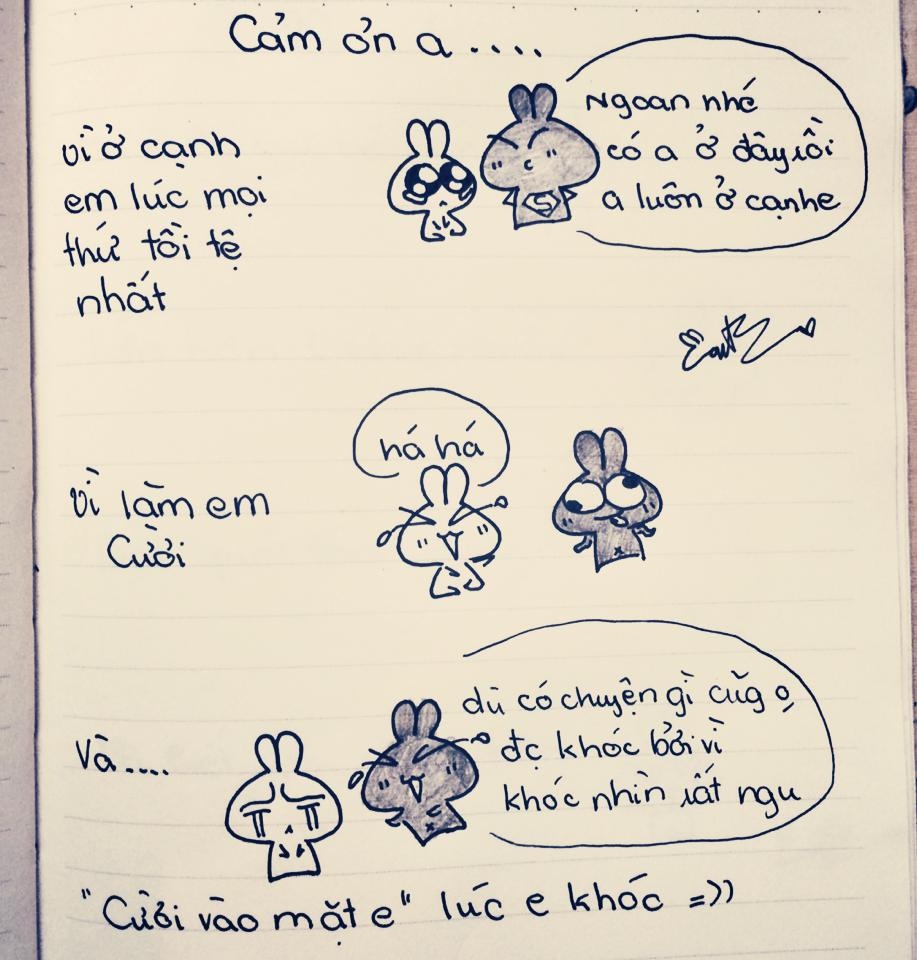 Cảm ơn a....
vì ở cạnh
em lúc mọi
thứ tồi tệ
nhất
Ngoan nhé
có a ở đây rồi
a luôn ở cạnh e
há há
vì làm em
Cười
Và....
dù có chuyện gì cũg o
đc khóc bởi vì
khóc nhìn rất ngu
"Cười vào mặt e" lúc e khóc =))